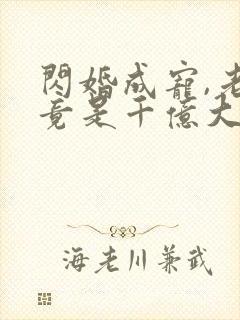 閃婚成寵,老
竟是千億大
海老川兼武